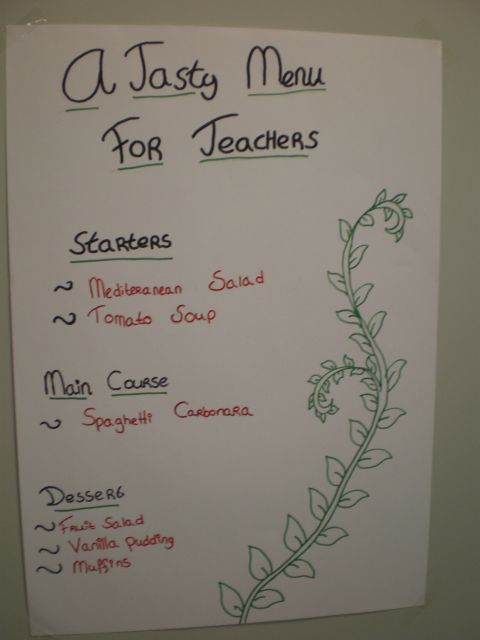 A Tasty Menu
For Teachers
Starters
~ Mediteranean Salad
~ Tomato Soup
Main Course
~ Spaghetti Carbonara
Dessert
~ Fruit Salad
~ Vanilla pudding
~ Muffins